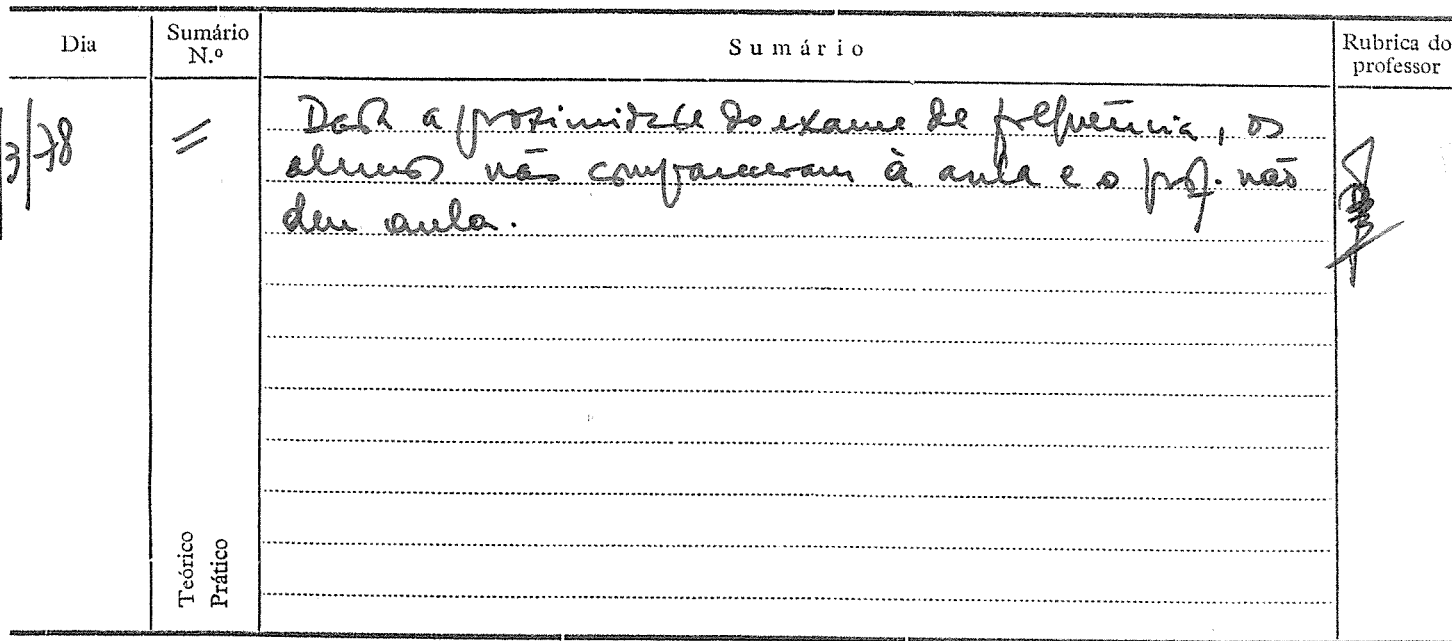 Dia
Sumário
N.º
Sumário
Rubrica do
professor
3/78
=
Dada a proximidade do exame de frequência, os
alunos não compareceram à aula e o prof. não
deu aula.
Teórico
Prático